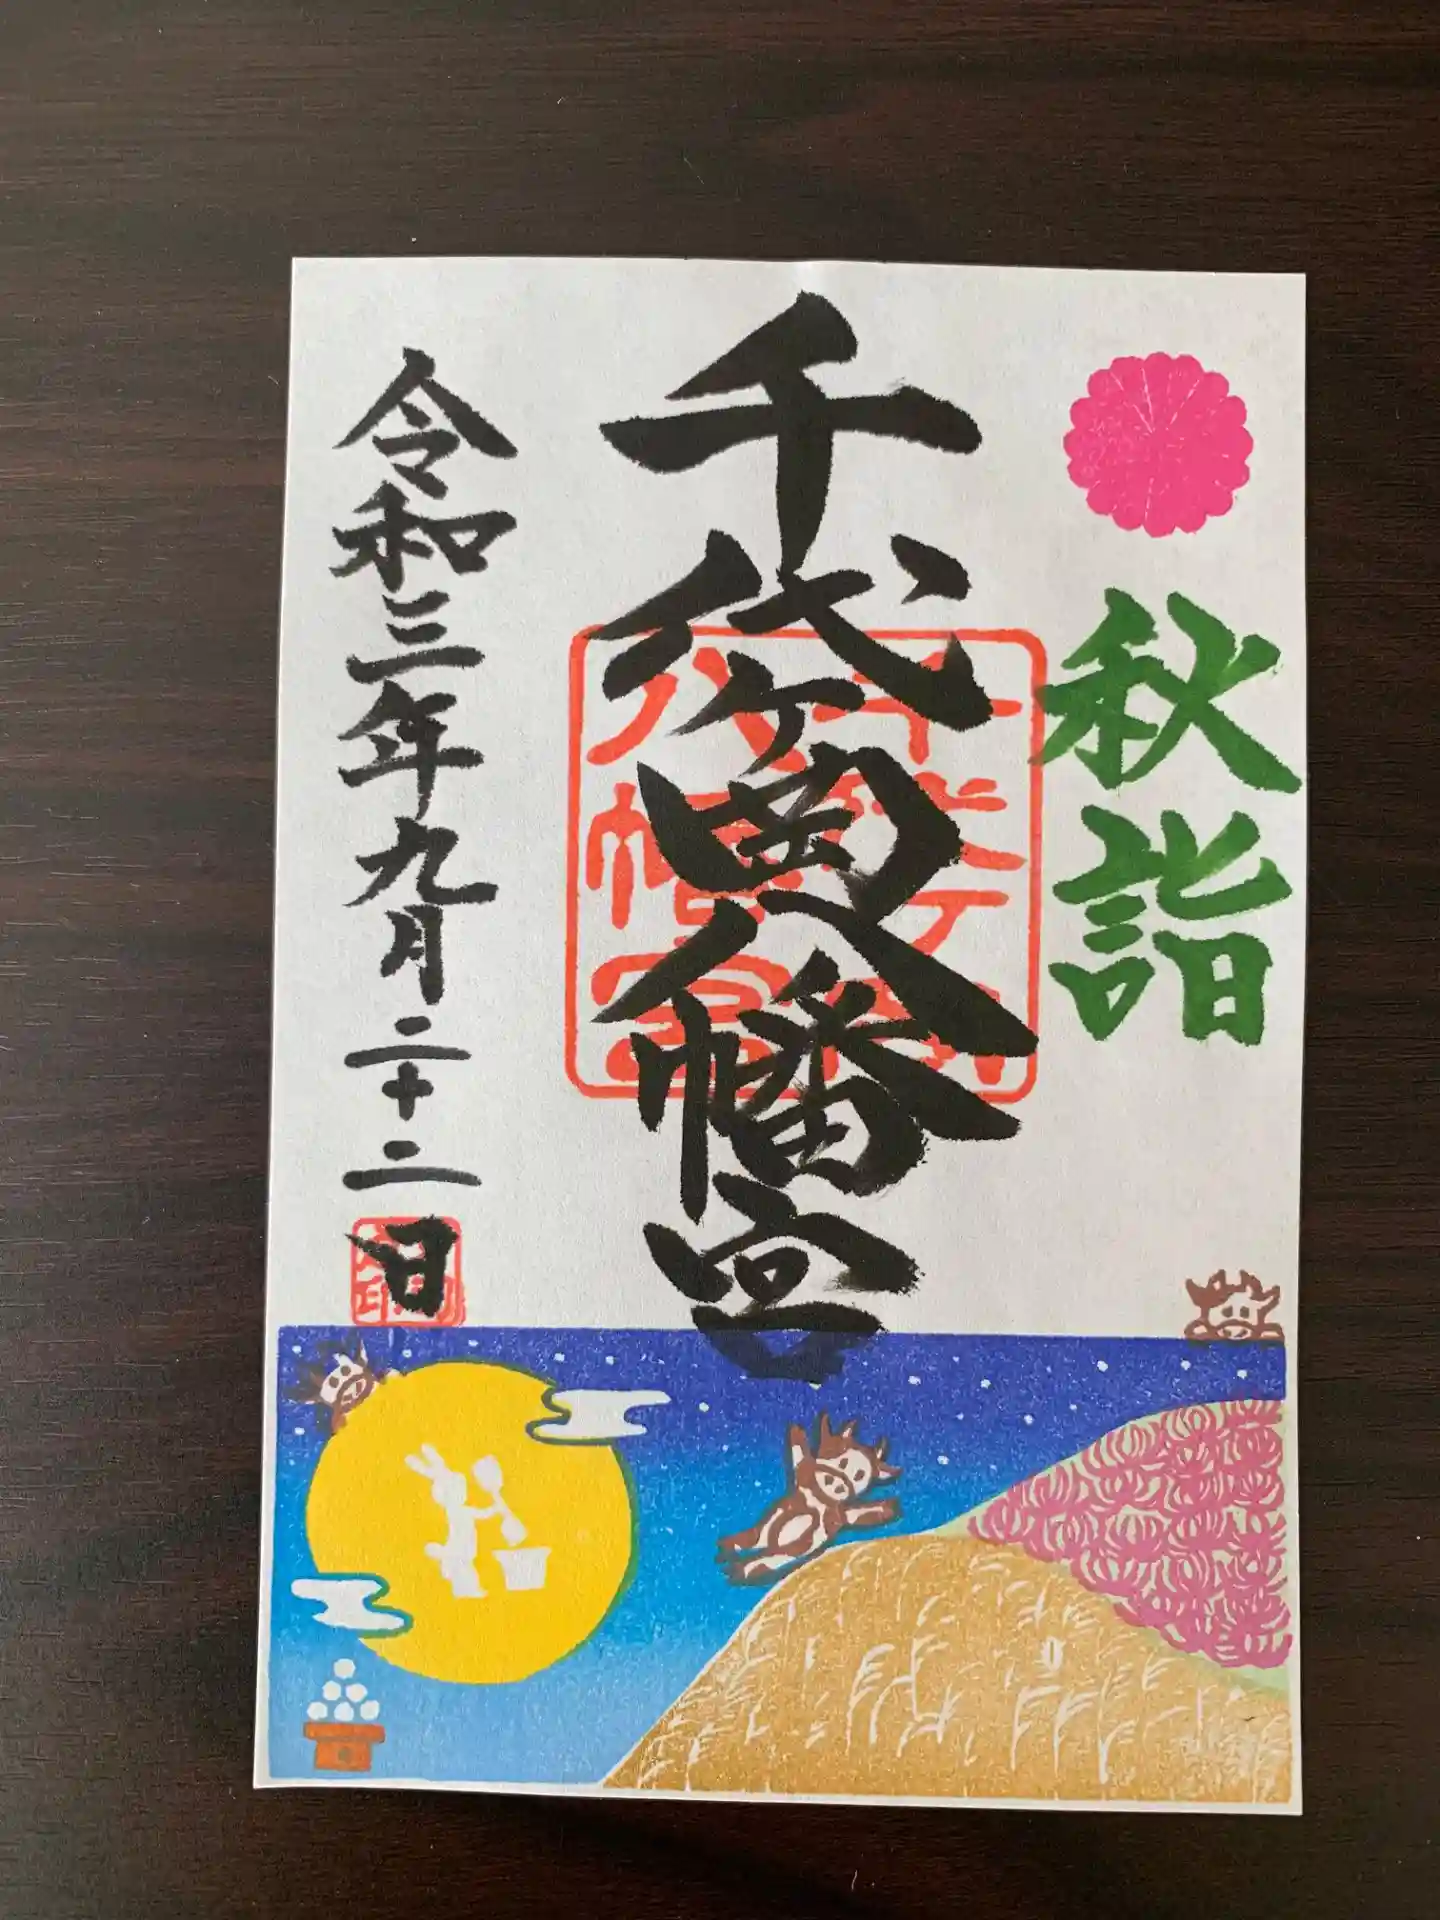 秋詣
千代ヶ岡八幡宮
千代ヶ岡
八幡宮
令和三年九月二十二日